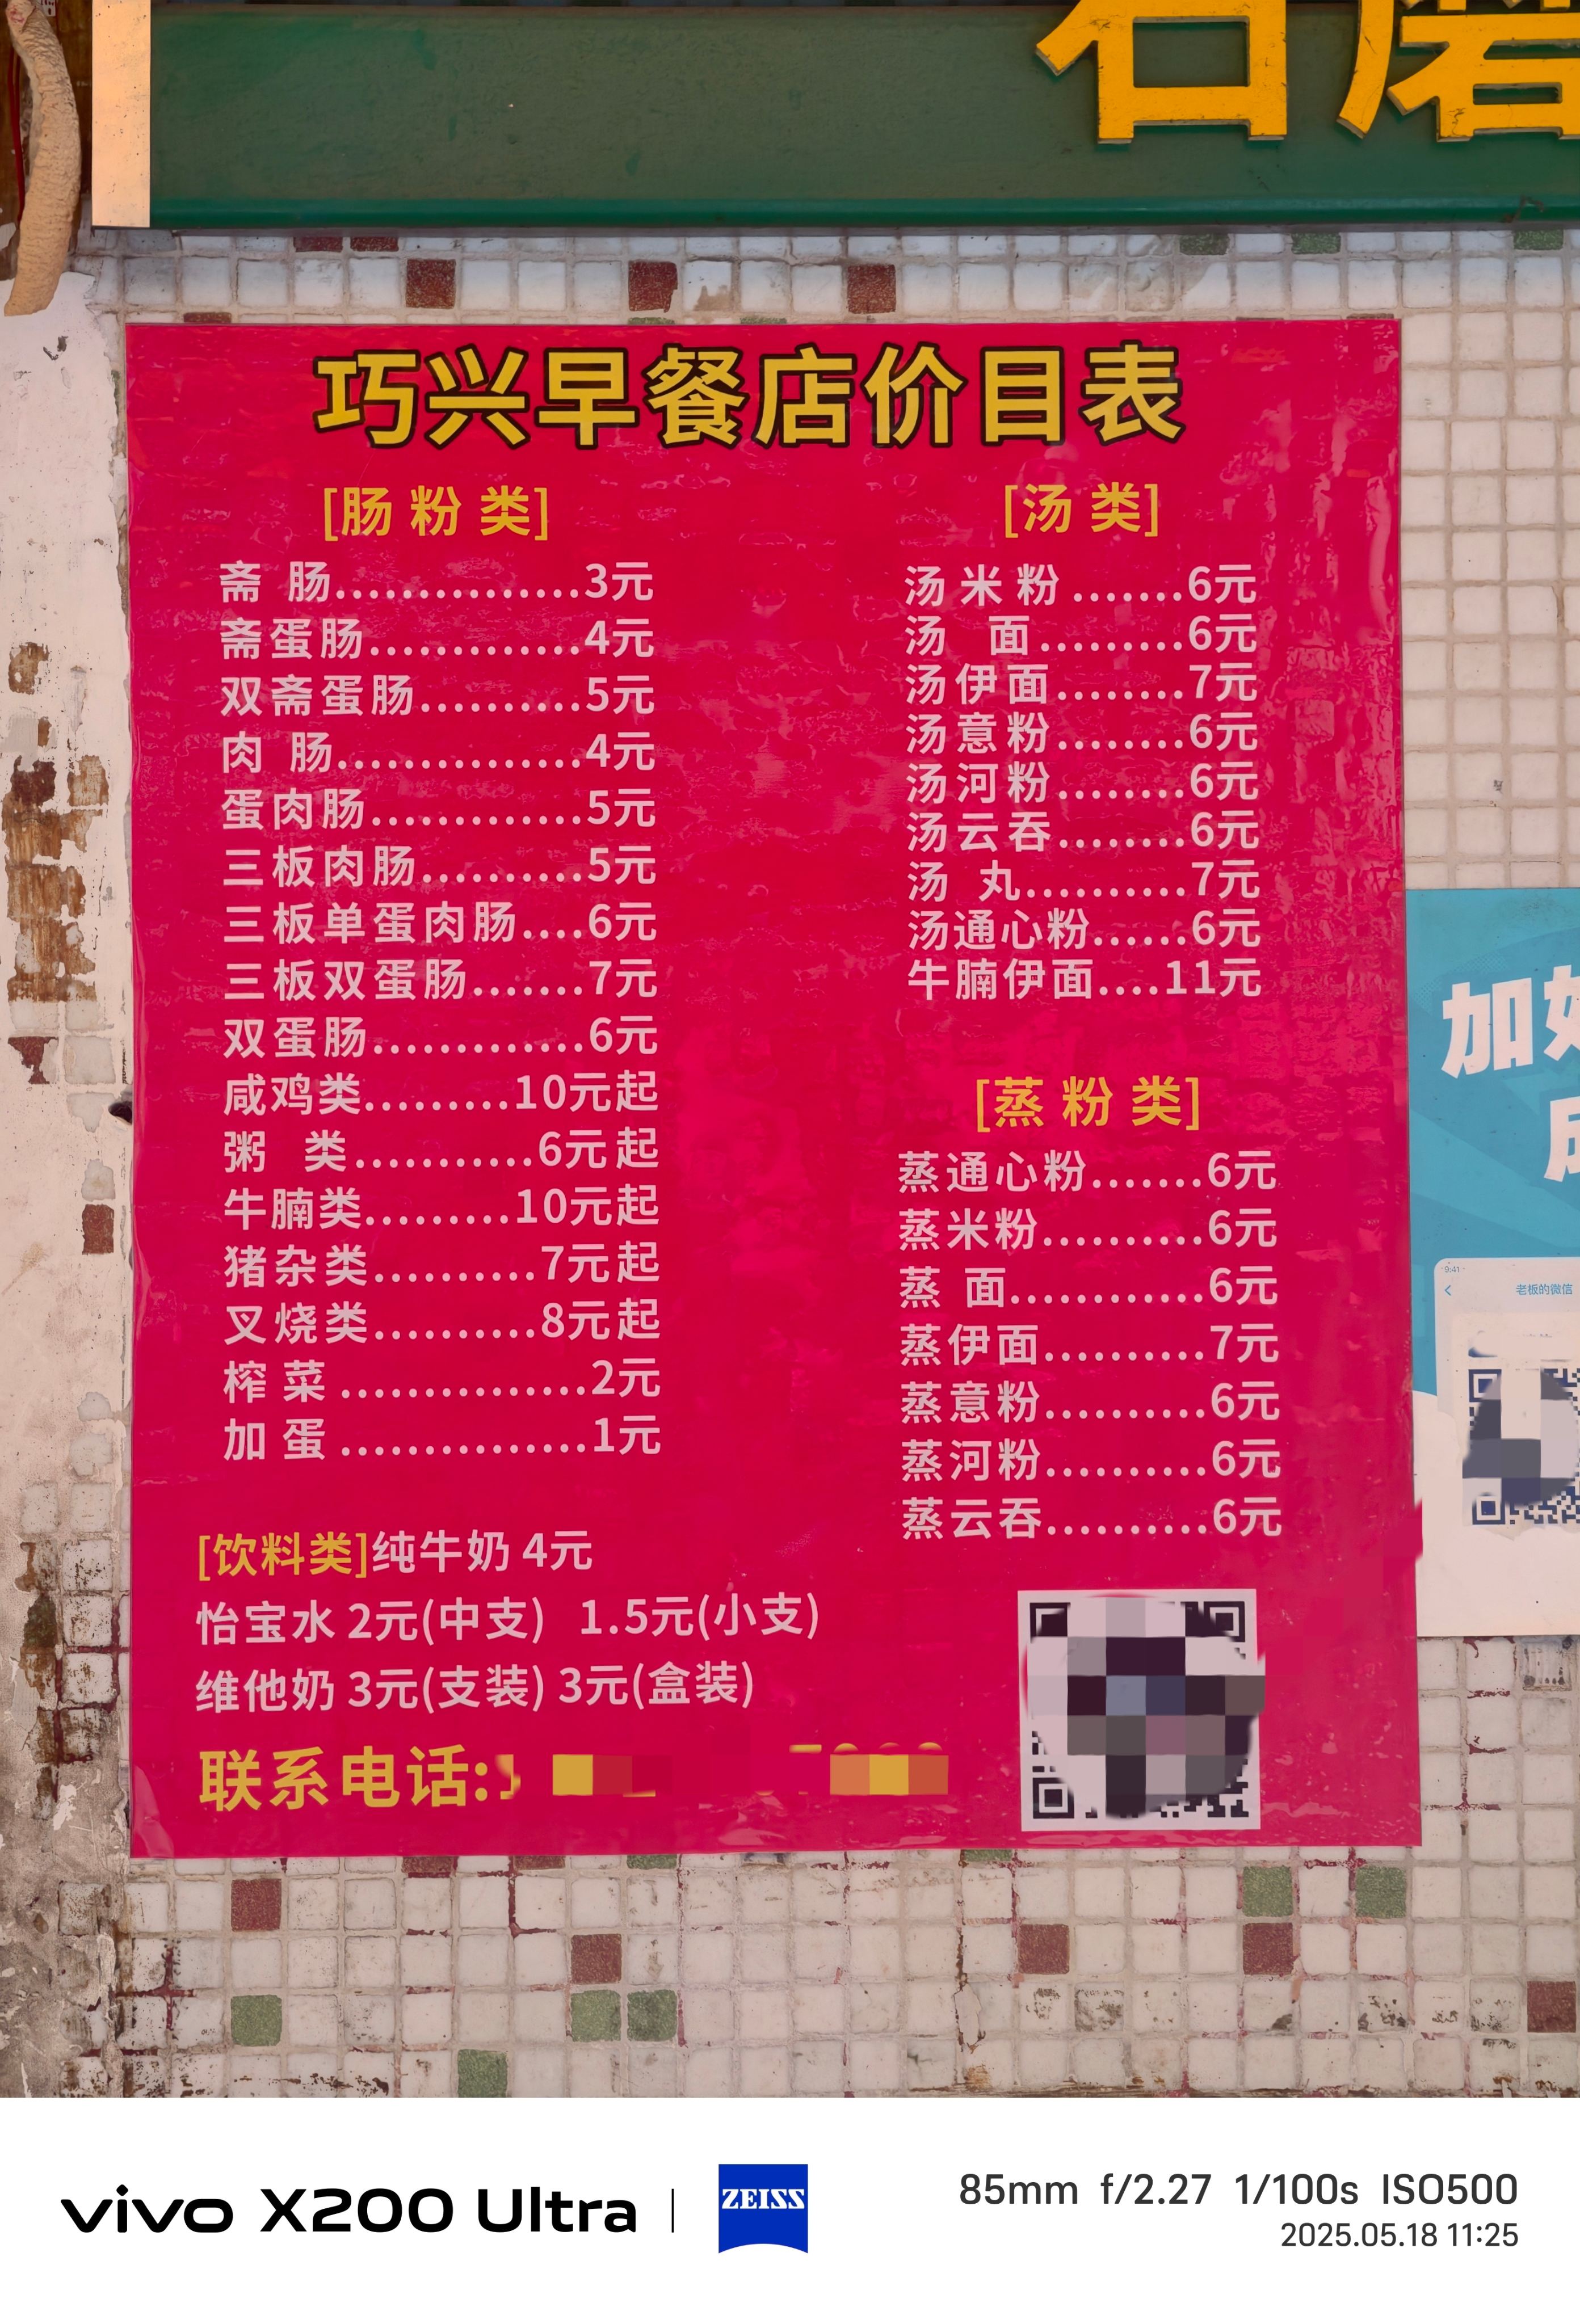 石磨
巧兴早餐店价目表
[肠粉类]
斋 肠...............3元
斋蛋肠.............4元
双斋蛋肠..........5元
肉 肠...............4元
蛋肉肠.............5元
三板肉肠..........5元
三板单蛋肉肠....6元
三板双蛋肠.......7元
双蛋肠.............6元
咸鸡类.........10元起
粥 类...........6元起
牛腩类.........10元起
猪杂类..........7元起
叉烧类..........8元起
榨菜...............2元
加蛋...............1元
[汤类]
汤米粉.......6元
汤 面.........6元
汤伊面........7元
汤意粉........6元
汤河粉........6元
汤云吞........6元
汤 丸..........7元
汤通心粉......6元
牛腩伊面....11元
[蒸粉类]
蒸通心粉.......6元
蒸米粉..........6元
蒸 面............6元
蒸伊面..........7元
蒸意粉..........6元
蒸河粉..........6元
蒸云吞..........6元
[饮料类]纯牛奶 4元
怡宝水 2元(中支) 1.5元(小支)
维他奶 3元(支装) 3元(盒装)
联系电话:
加
9:41
老板的微信
vivo X200 Ultra
ZEISS
85mm f/2.27 1/100s ISO500
2025.05.18 11:25